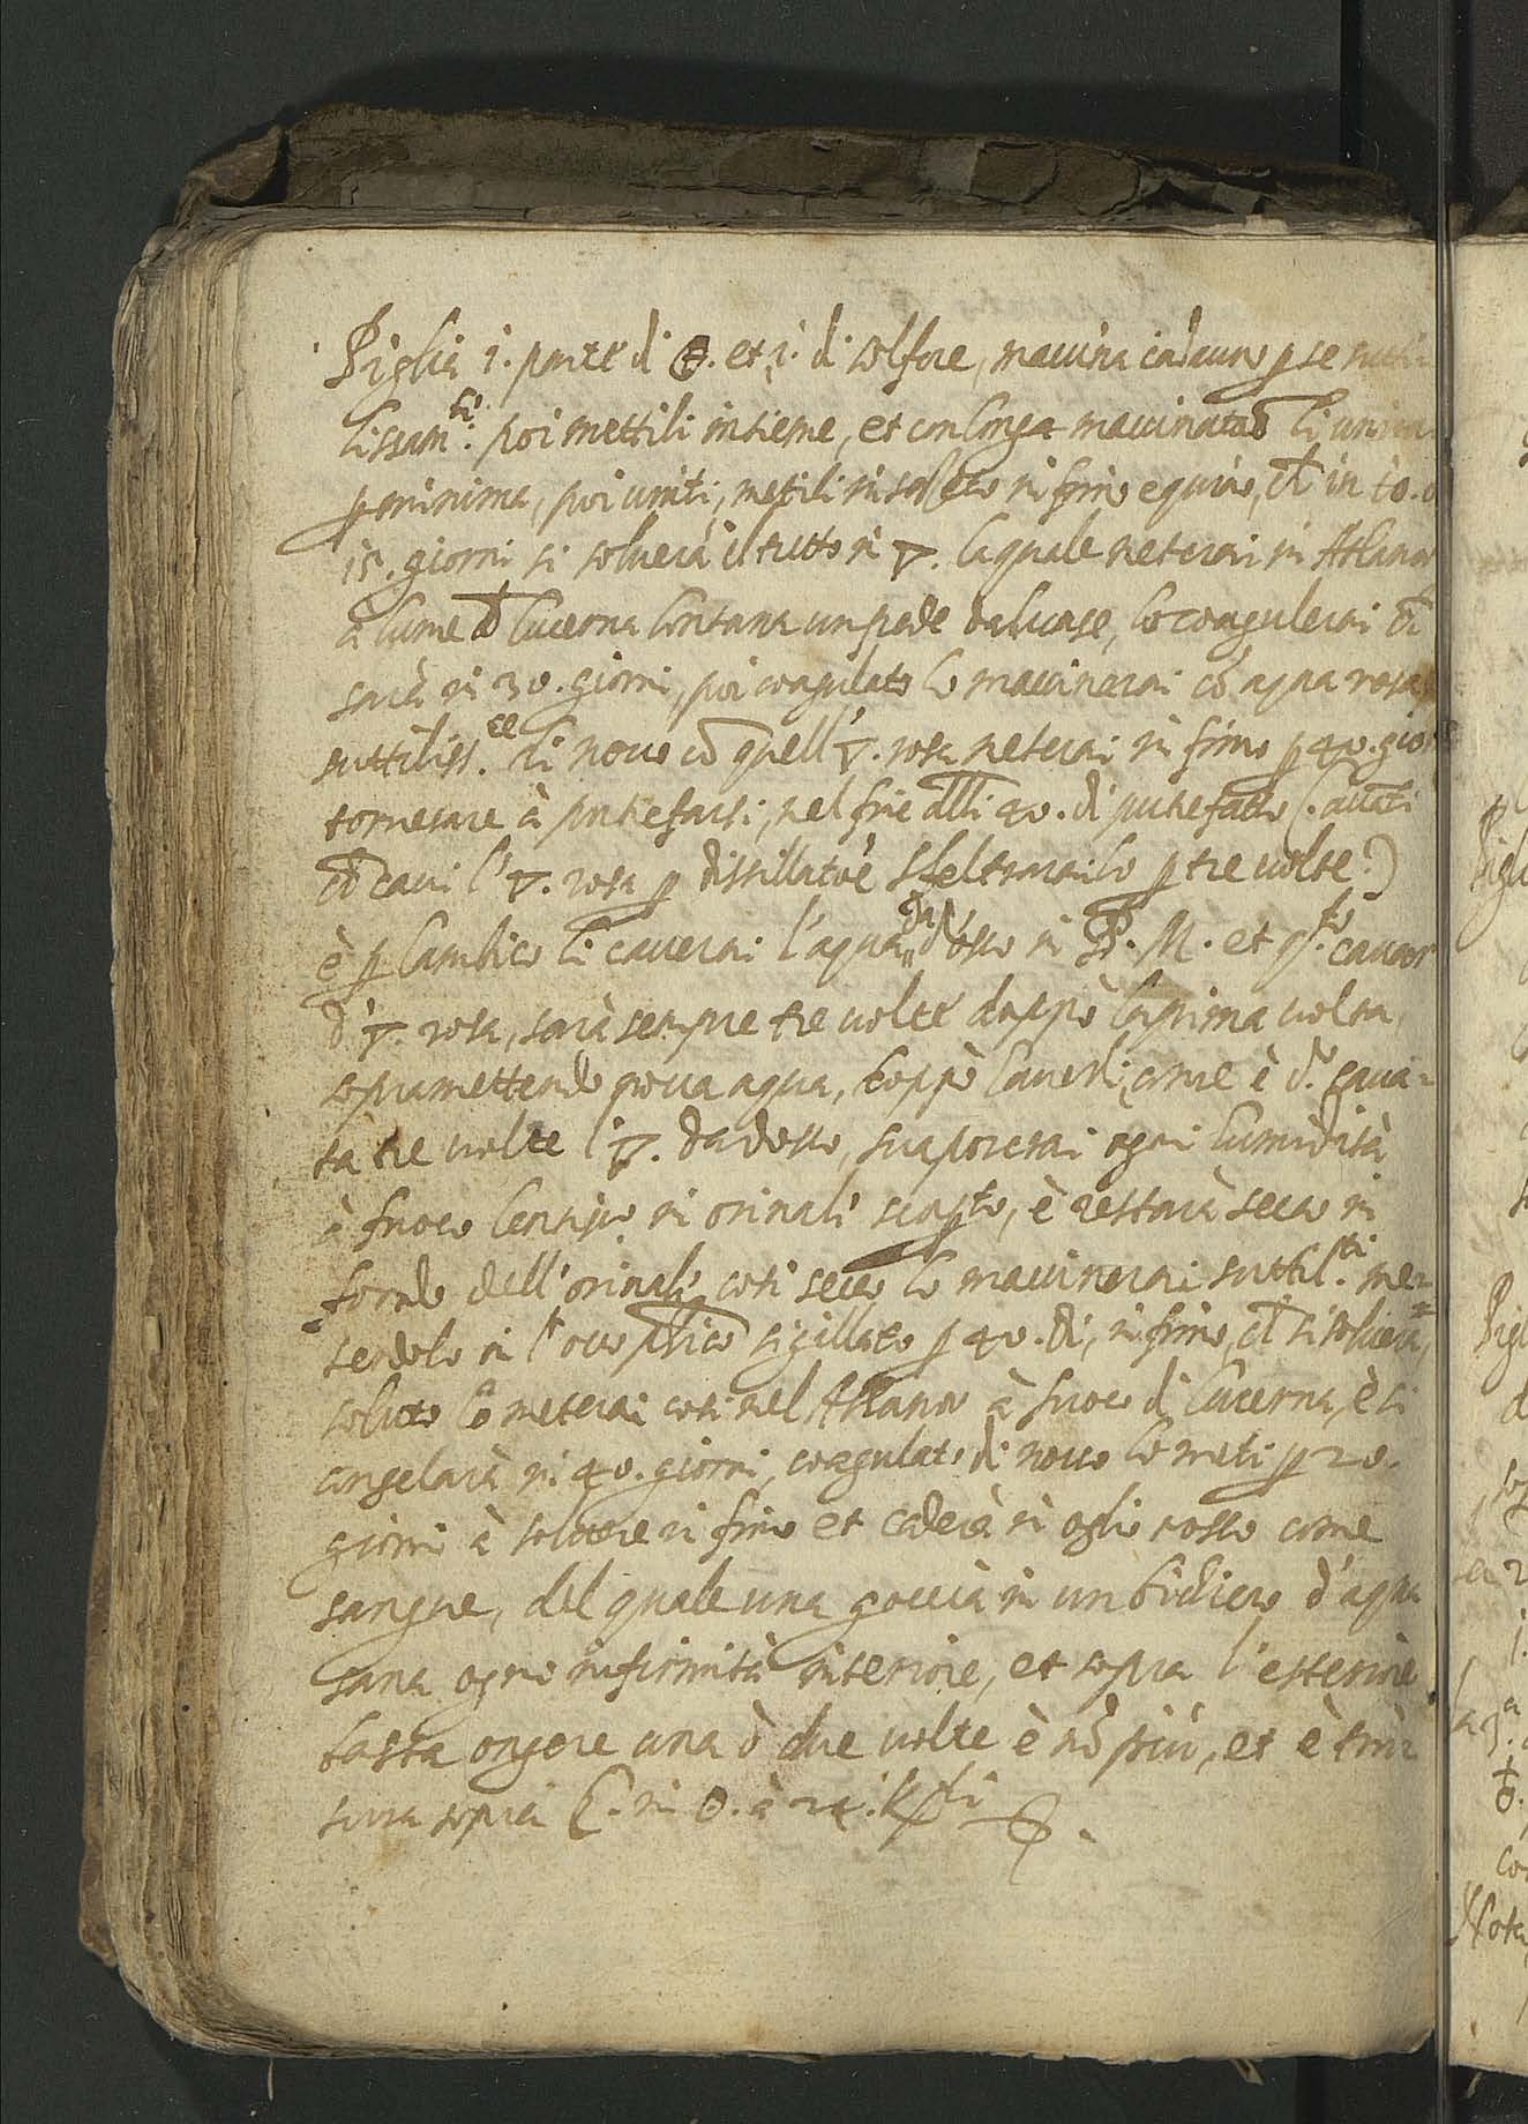 Piglia 1. parte di 🜔. et 1. di solfore, maccina cadauno p se
lissam.ti poi mettili insieme, et con longa maccinatiō li
p minima, poi uniti, metili in fimo equino, ch̄ in 10. ò
15. giorni si soluerà il tutto in 🜄. laquale meterai in Athanor
à lume d lucerna lontana un piede dal uase, lo coagulerai ch̄
sarà in 30. giorni, poi coagulato lo maccinerai cō aqua rosa
suttiliss. di nouo cō quell' 🜄. rosa meterai in fimo p 40. gior
tornerare à putrefarsi, nel fine dlli 40. di putrefatto (.
caui l' 🜄. rosa p distillatōe p tre uolte.)
è p lambico li cauerai l'aqua da dosso in B. M. et q.to cauar
d' 🜄. rosa, sarà sempre tre uolte doppò la prima uolta,
sopramettendo noua aqua, doppò come è d.o caua=
ta tre uolte l' 🜄. da dosso, suaporerai ogni humidità
à fuoco lentiss.o in orinali scopto, è restarà secco in
fondo dell' orinali, cosi secco lo maccinerai suttil.ti me=
tendolo in l' ouo phico sigillato p 40. di, in fimo, ch̄ si soluerà,
soluto lo meterai cosi nel Athanor à fuoco di lucerna, è si
congelarà in 40. giorni, coagulato di nouo lo meti p 20.
giorni à soluere in fimo et caderà in oglio rosso come
sangue, del quale una goccia in un bichiero d'aqua
sana ogni infirmità interiore, et sopra l'esteriore
basta ongere una ò due uolte è nō più, et è tin=
tura sopra ☾. in ☉. à 24. K.ti